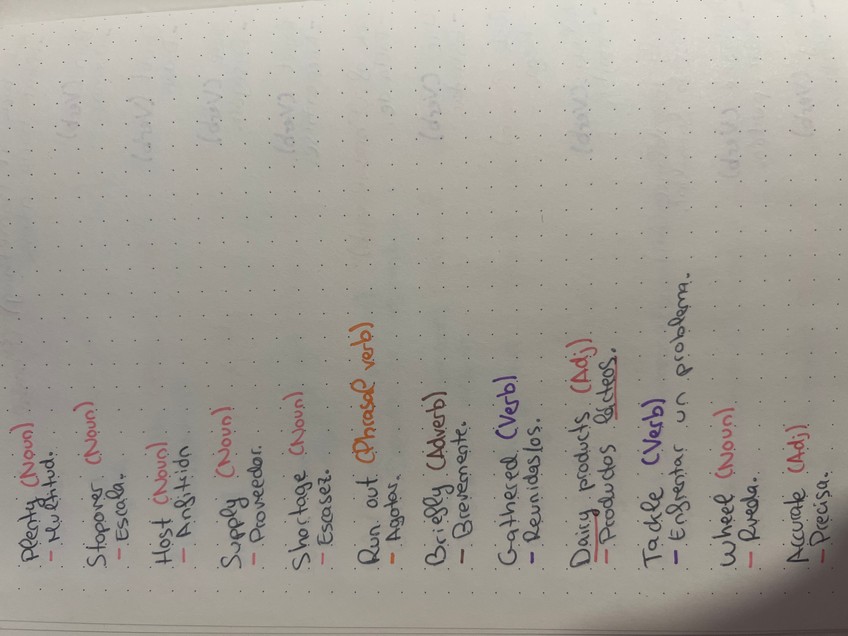 Plenty (Noun)
- Multitud.
Stopover (Noun)
- Escala.
Host (Noun)
- Anfitrión
Supply (Noun)
- Proveedor.
Shortage (Noun)
- Escasez.
Run out (Phrasal verb)
- Agotar.
Briefly (Adverb)
- Brevemente.
Gathered (Verb)
- Reunidas/os.
Dairy products (Adj)
- Productos lácteos.
Tackle (Verb)
- Enfrentar un problema.
Wheel (Noun)
- Rueda.
Accurate (Adj)
- Precisa.